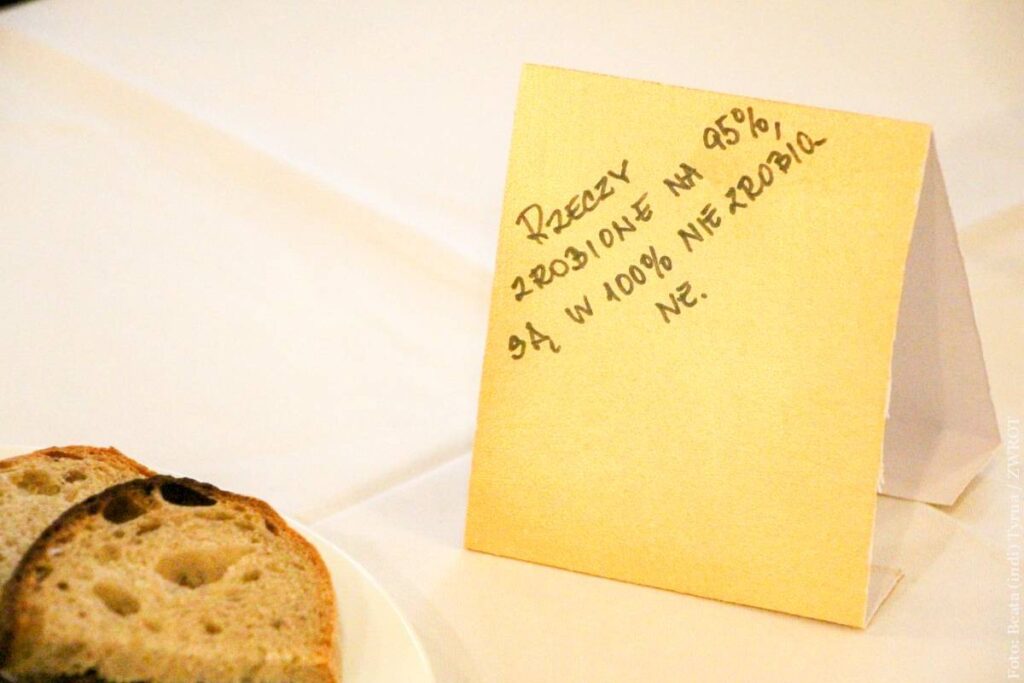 RZECZY
ZROBIONE NA 95%,
SĄ W 100% NIE ZROBIO
NE.
Foto: Beata (indi) Tyrna / ZWROT